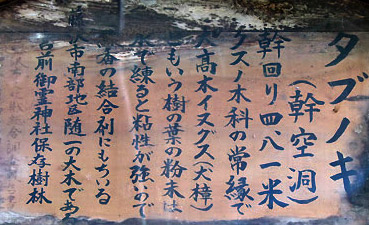 タブノキ
(幹空洞)
幹回り四、八一米
クスノ木科の常緑で
大高木イヌグス(犬樟)
ともいう樹の葉の粉末は
水で練ると粘性が強いので
香の結合剤にもちいる
藤沢市南部地区随一の大木である
宮前御霊神社保存樹林